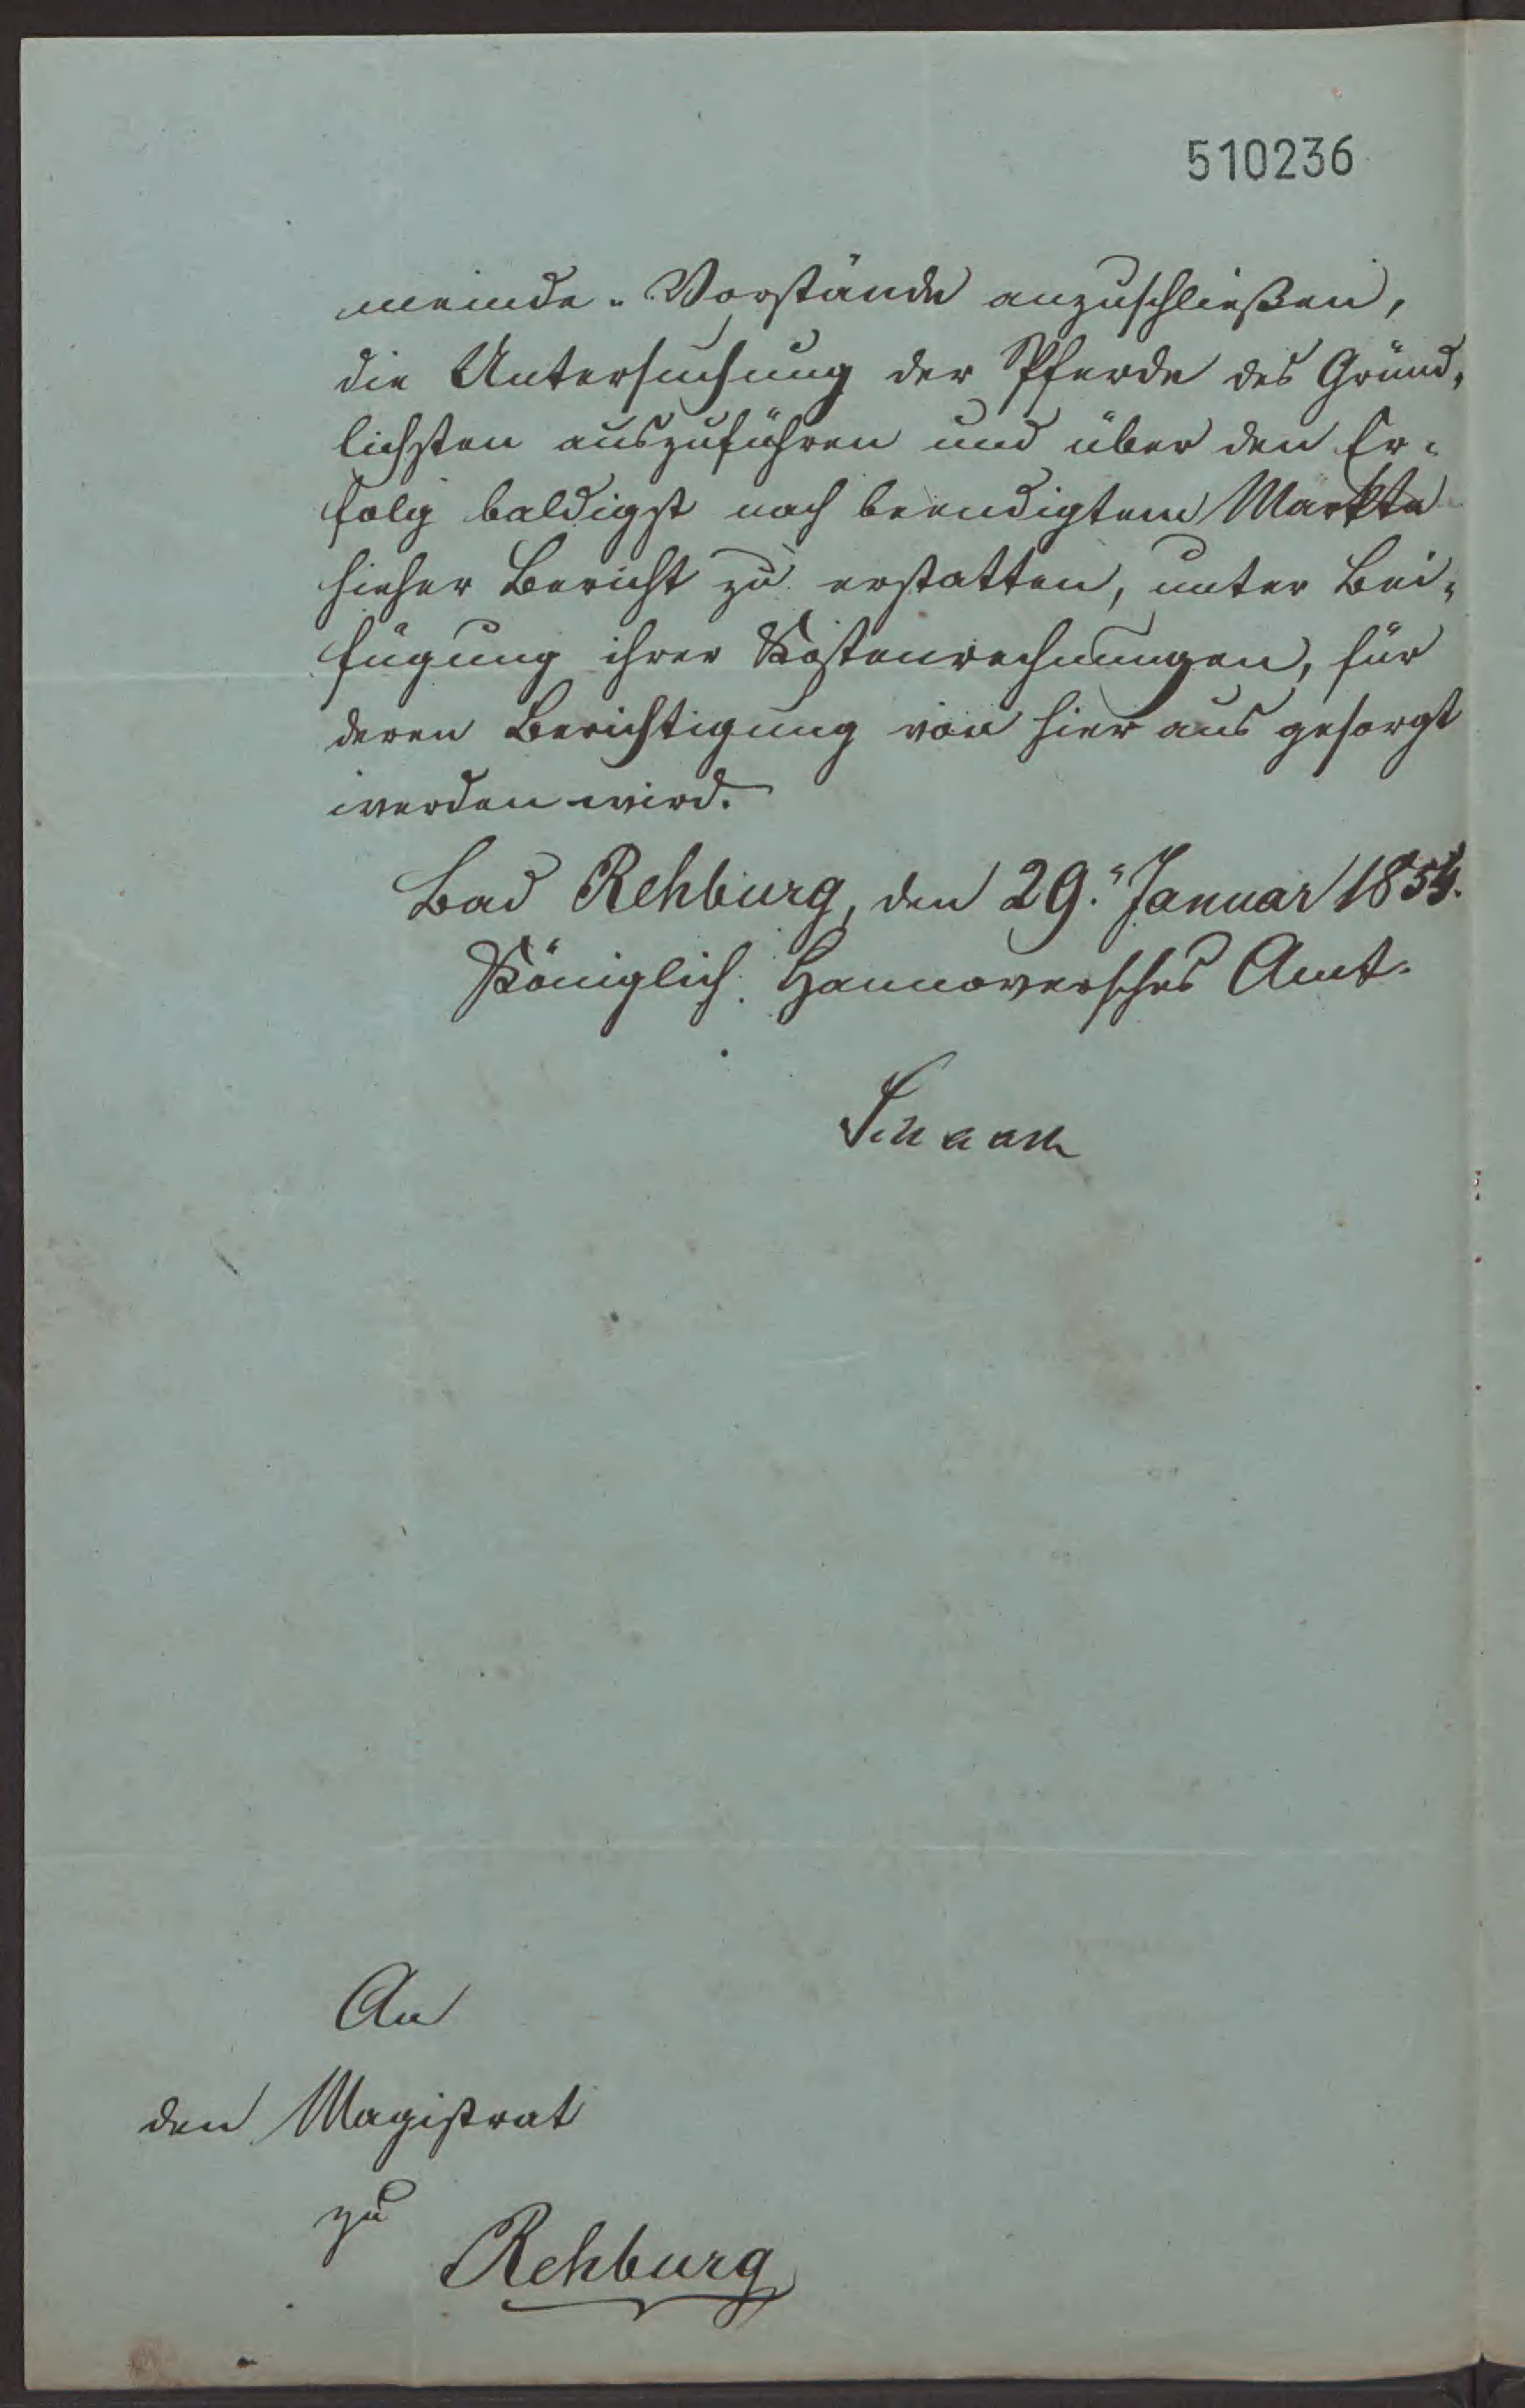 510236
meinde-Vorstände anzuschließen,
die Untersuchung der Pferde des Gründ-
lichsten auszuführen und über den Er-
folg baldigst nach beendigtem Markte
hieher Bericht zu erstatten, unter Bei-
fügung ihrer Kostenrechnungen, für
deren Berichtigung von hier aus gesorgt
werden wird.
Bad Rehburg, den 29. Januar 1854.
Königlich Hannoversches Amt.
An
den Magistrat
zu
Rehburg